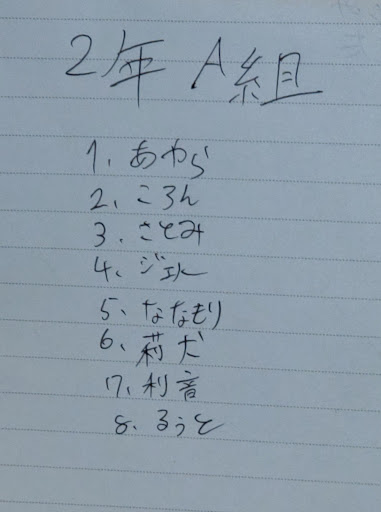 2年 A組
1、あやら
2、ころん
3、さとみ
4、ジェル
5、ななもり
6、莉犬
17、利音
8、るぅと